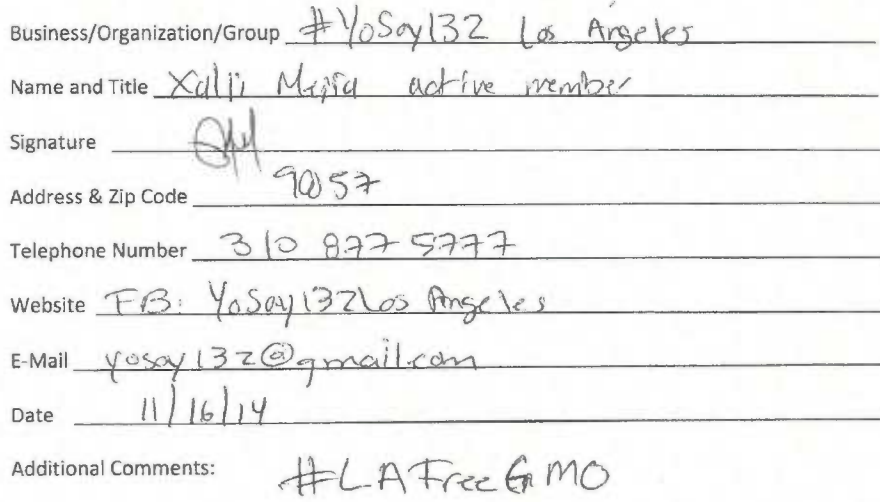 Business/Organization/Group #YoSoy132 Los Angeles
Name and Title Mejia active member
Signature
Address & Zip Code 90057
Telephone Number 310 877 5777
Website FB: YoSoy132Los Angeles
E-Mail yosoy132@gmail.com
Date 11/16/14
Additional Comments: #LAFreeGMO